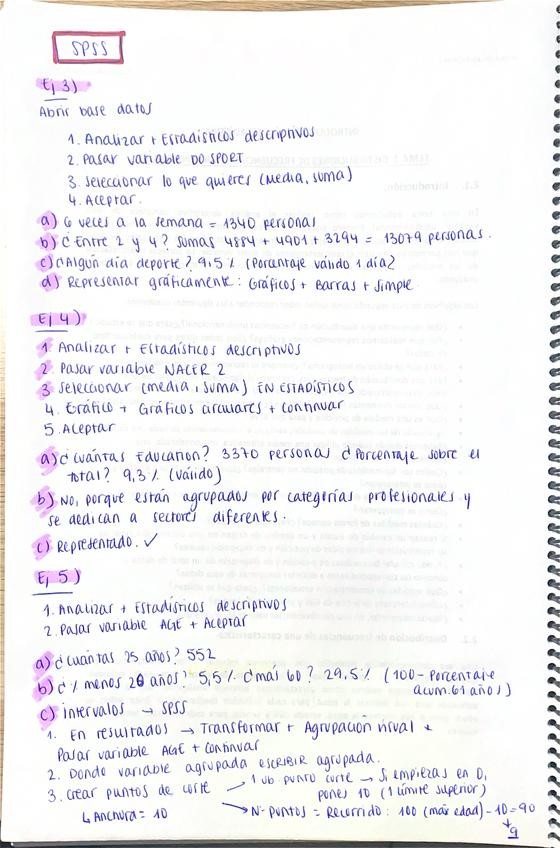 SPSS
Ej 3)
Abrir base datos
1. Analizar + Estadísticos descriptivos
2. Pasar variable DO SPORT
3. Seleccionar lo que quieres (media, suma)
4. Aceptar.
a) 6 veces a la semana = 1340 personas
b) ¿Entre 2 y 4? Sumas 4884 + 4901 + 3294 = 13079 personas.
c) ¿Algún día deporte? 9,5% (Porcentaje válido 1 día?
d) Representar gráficamente: Gráficos + Barras + Simple
Ej 4)
1. Analizar + Estadísticos descriptivos
2. Pasar variable NACER 2
3 Seleccionar (media, suma) EN ESTADÍSTICOS
4. Gráfico + Gráficos circulares + continuar
5. Aceptar
a) ¿Cuántas Education? 3370 personas ¿Porcentaje sobre el
total? 9,3% (válido)
b) No, porque están agrupados por categorías profesionales y
se dedican a sectores diferentes.
c) Representado. ✓
Ej 5)
1. Analizar + Estadísticos descriptivos
2. Pasar variable AGE + Aceptar
a) ¿Cuántas 25 años? 552
b) ¿% menos 20 años? 5,5% ¿más 60? 29,5% (100 - Porcentaje
acum. 61 años)
c) Intervalos → SPSS
1. En resultados → Transformar + Agrupación visual +
Pasar variable AGE + continuar
2. Donde variable agrupada ESCRIBIR agrupada.
3. Crear puntos de corte → 1 ub. punto corte → Si empiezas en 0,
pones 10 (1 límite superior)
↳ Anchura = 10 → Nº puntos = Recorrido: 100 (más edad) - 10 = 90
↓
9